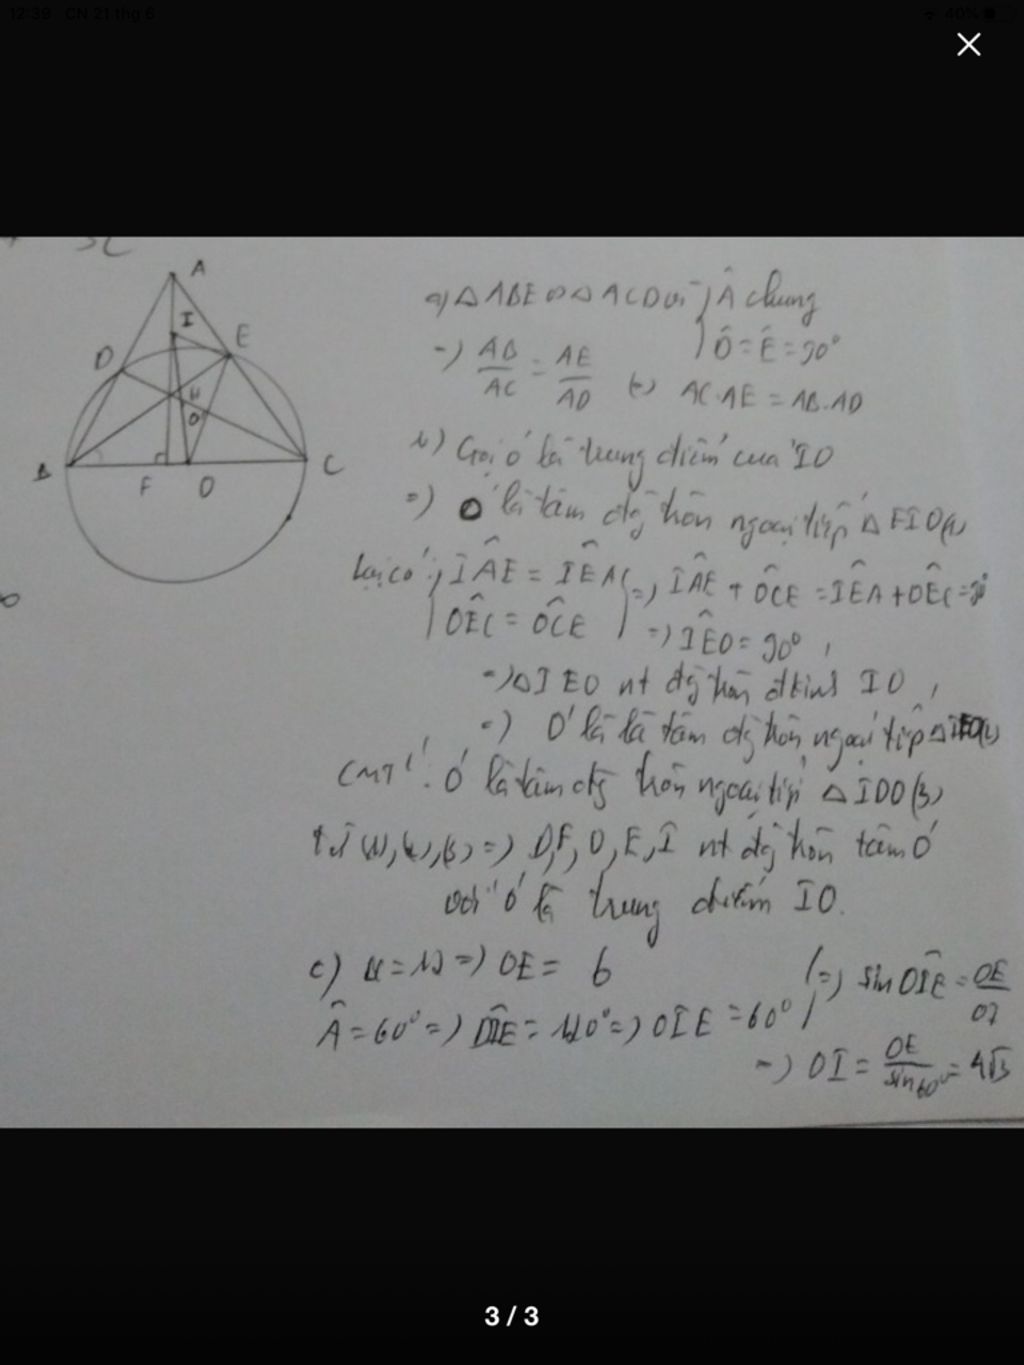 12:39 CN 21 thg 6
40%
A
I
D
E
H
O'
B
F
O
C
a) △ABE ∽ △ACD vì { Â chung
D̂ = Ê = 90°
=) AB/AC = AE/AD (=) AC.AE = AB.AD
b) Gọi O' là trung điểm của IO
=) O' là tâm đg tròn ngoại tiếp △FIO (1)
Lại có: { IÂE = IÊA } =) IÂE + OĈE = IÊA + OÊC = 90°
OÊC = OĈE =) IÊO = 90°
=) △IEO nt đg tròn đkính IO
=) O' là là tâm đg tròn ngoại tiếp △IEO (2)
CMTT: O' là tâm đg tròn ngoại tiếp △IDO (3)
Từ (1), (2), (3) =) D, F, O, E, I nt đg tròn tâm O'
với O' là trung điểm IO.
c) =) OE = 6
Â = 60° =) DÎE = 120° =) OÎE = 60° } =) sin OÎE = OE/OI
=) OI = OE/sin 60° = 4√3
3 / 3